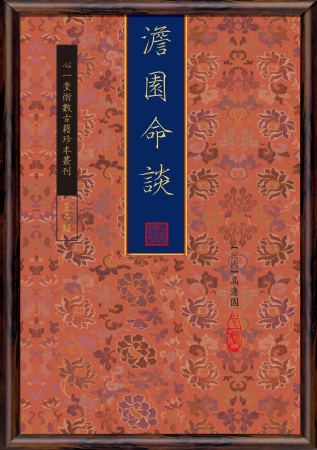 澹園命談
心一堂術數古籍珍本叢刊
星命類
【民國】高澹園